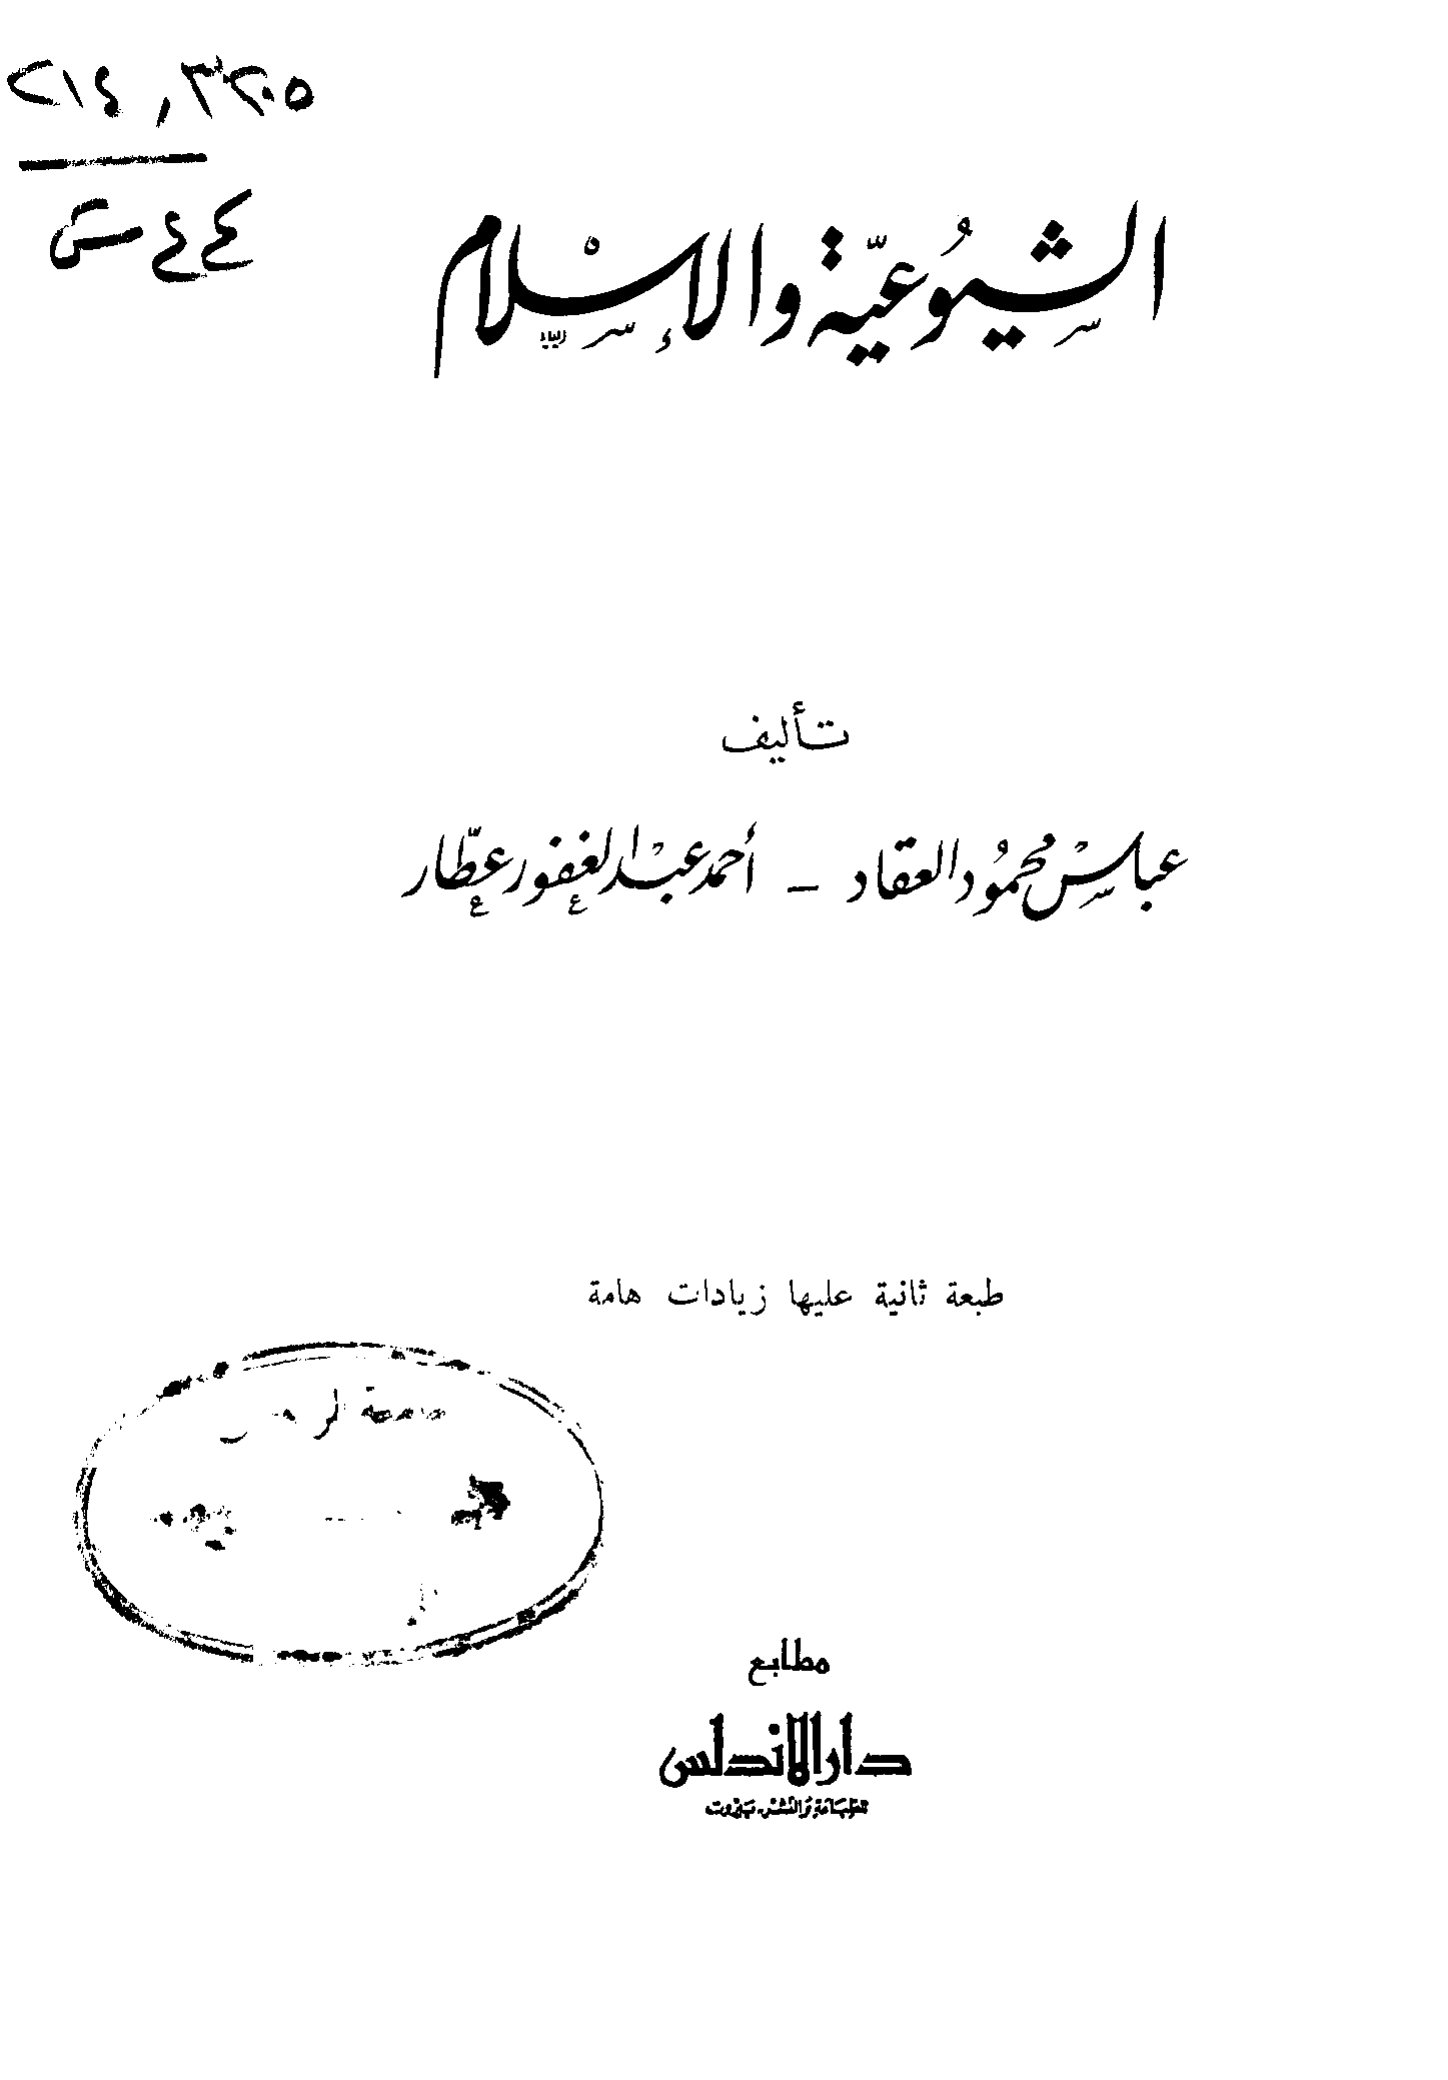 ٢١٤,٣٢٠٥
ع ع ش
الشيُوعيّة والإسْلام
تأليف
عباسْ محمُود العقاد – أحمد عبْد الغفور عطّار
طبعة ثانية عليها زيادات هامة
جامعة
مطابع
دار الاندلس
للطباعة والنشر - بيروت